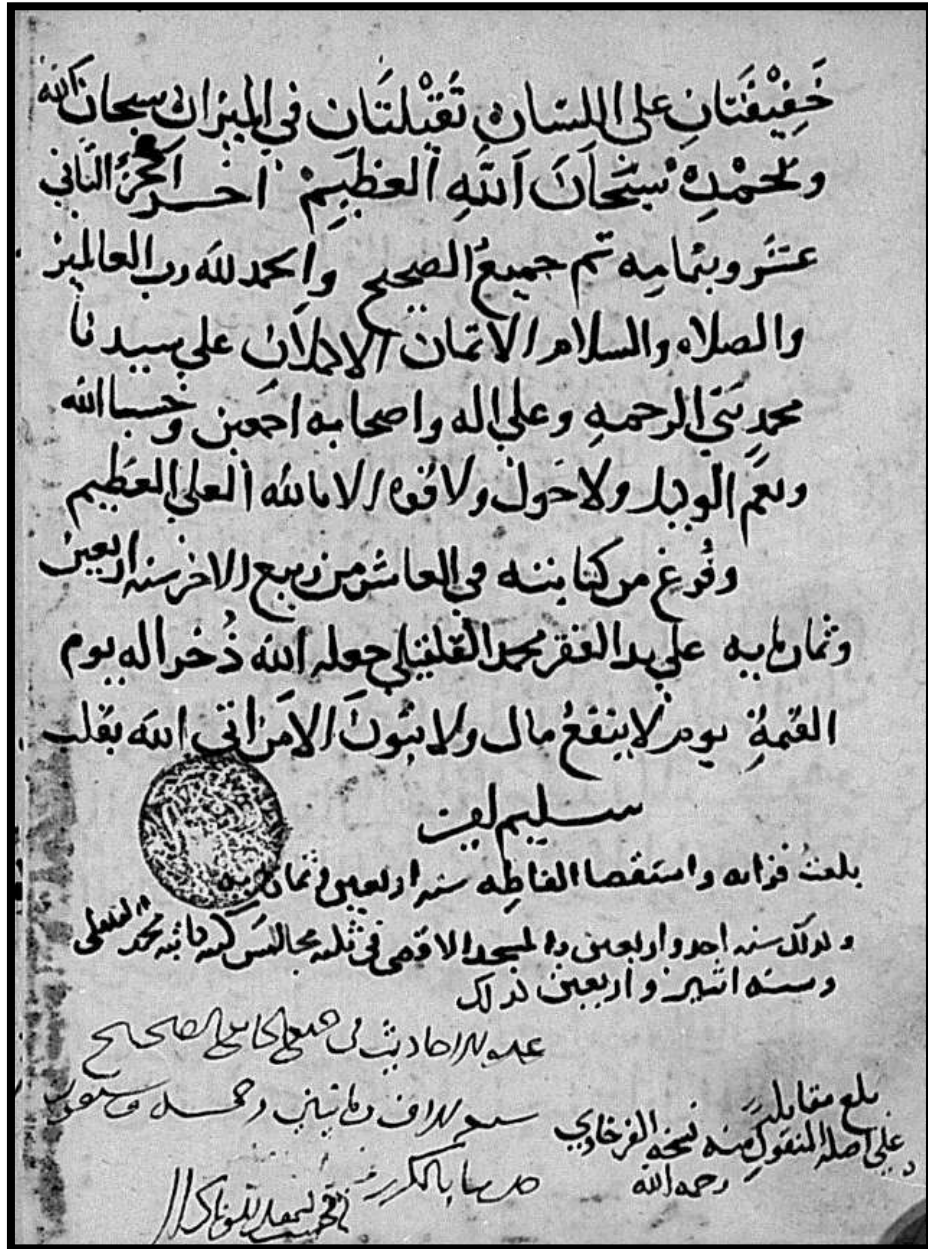 خَفِيْفَتَانِ على اللسان ثَقِيْلَتَان في الميزان سبحان الله
وبحمدِه سُبْحَانَ اللهِ العظِيمْ آخر الجزء الثاني
عشر وبتمامِه تم جميعُ الصحيح والحمد لله رب العالمين
والصلاه والسلام الاتمان الاكملان على سيدنا
محمد نَبي الرحمهِ وعلى اله واصحابه اجمعين وحسبنا الله
ونعم الوكيل ولا حَول ولا قوه الا بالله العلي العظيم
وفُرغ من كتابته في العاشر من ربيع الاخر سنه اربعين
وثمان مايه على يد الفقير محمد القلقيلي جعله الله ذُخرا له يوم
القيمة يوم لا ينفعُ مال ولا بنونَ الا من اتى الله بقلب
سليم
بلغتُ قراه واستقصا الفاظِه سنه اربعين وثمان مايه
وكذلك سنه احد واربعين بالمسجد الاقصى في ثلثه مجالس كتبه محمد القلقيلي
وسنه اثنين واربعين كذلك
عده الاحاديث في الصحيح
سبعه الاف ومايتين وخمسه وسبعون
حديثا بالمكرر
بلغ مقابلة
على اصله المنقول منه نسخه
رحمه الله